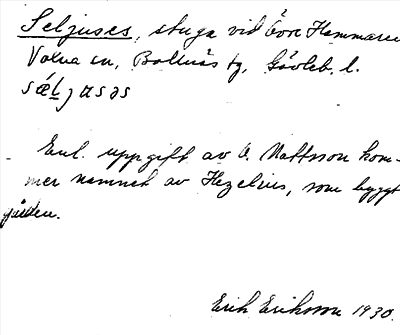 Seljuses, stuga vid Övre Hammaren
Voxna sn, Bollnäs tg, Gävleb. l.
sæljusəs
Enl. uppgift av O. Mattsson kom-
mer namnet av Hezelius, som byggt
gården.
Erik Eriksson 1930.